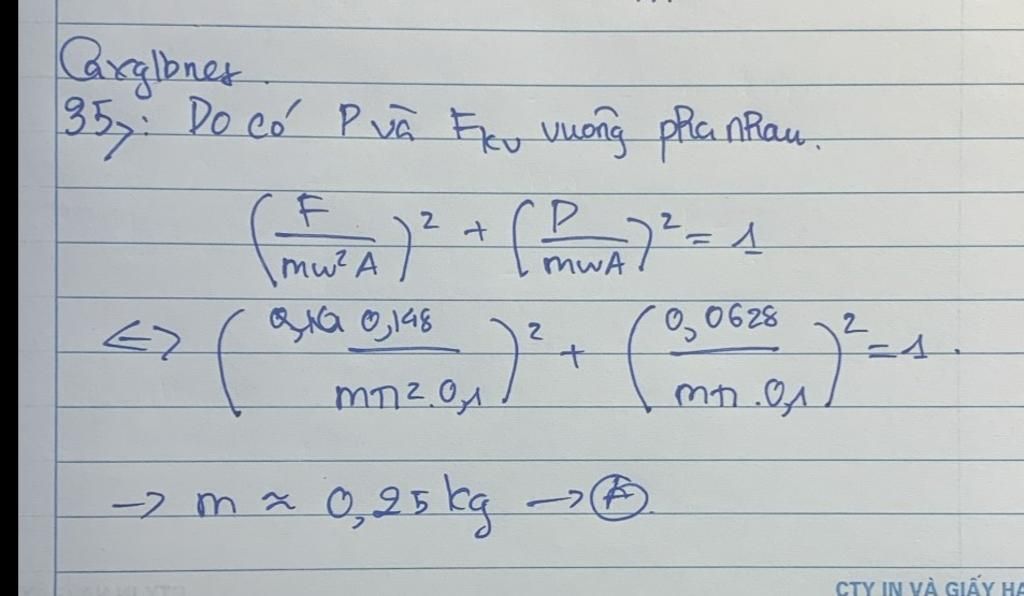 Caxglbnes.
35>: Do có P và Fkv vuông pha nhau.
(F / mω² A)² + (P / mωA)² = 1
<=> (0,148 / mπ².0,1)² + (0,0628 / mπ.0,1)² = 1.
→ m ≈ 0,25kg → A.
CTY IN VÀ GIẤY HA